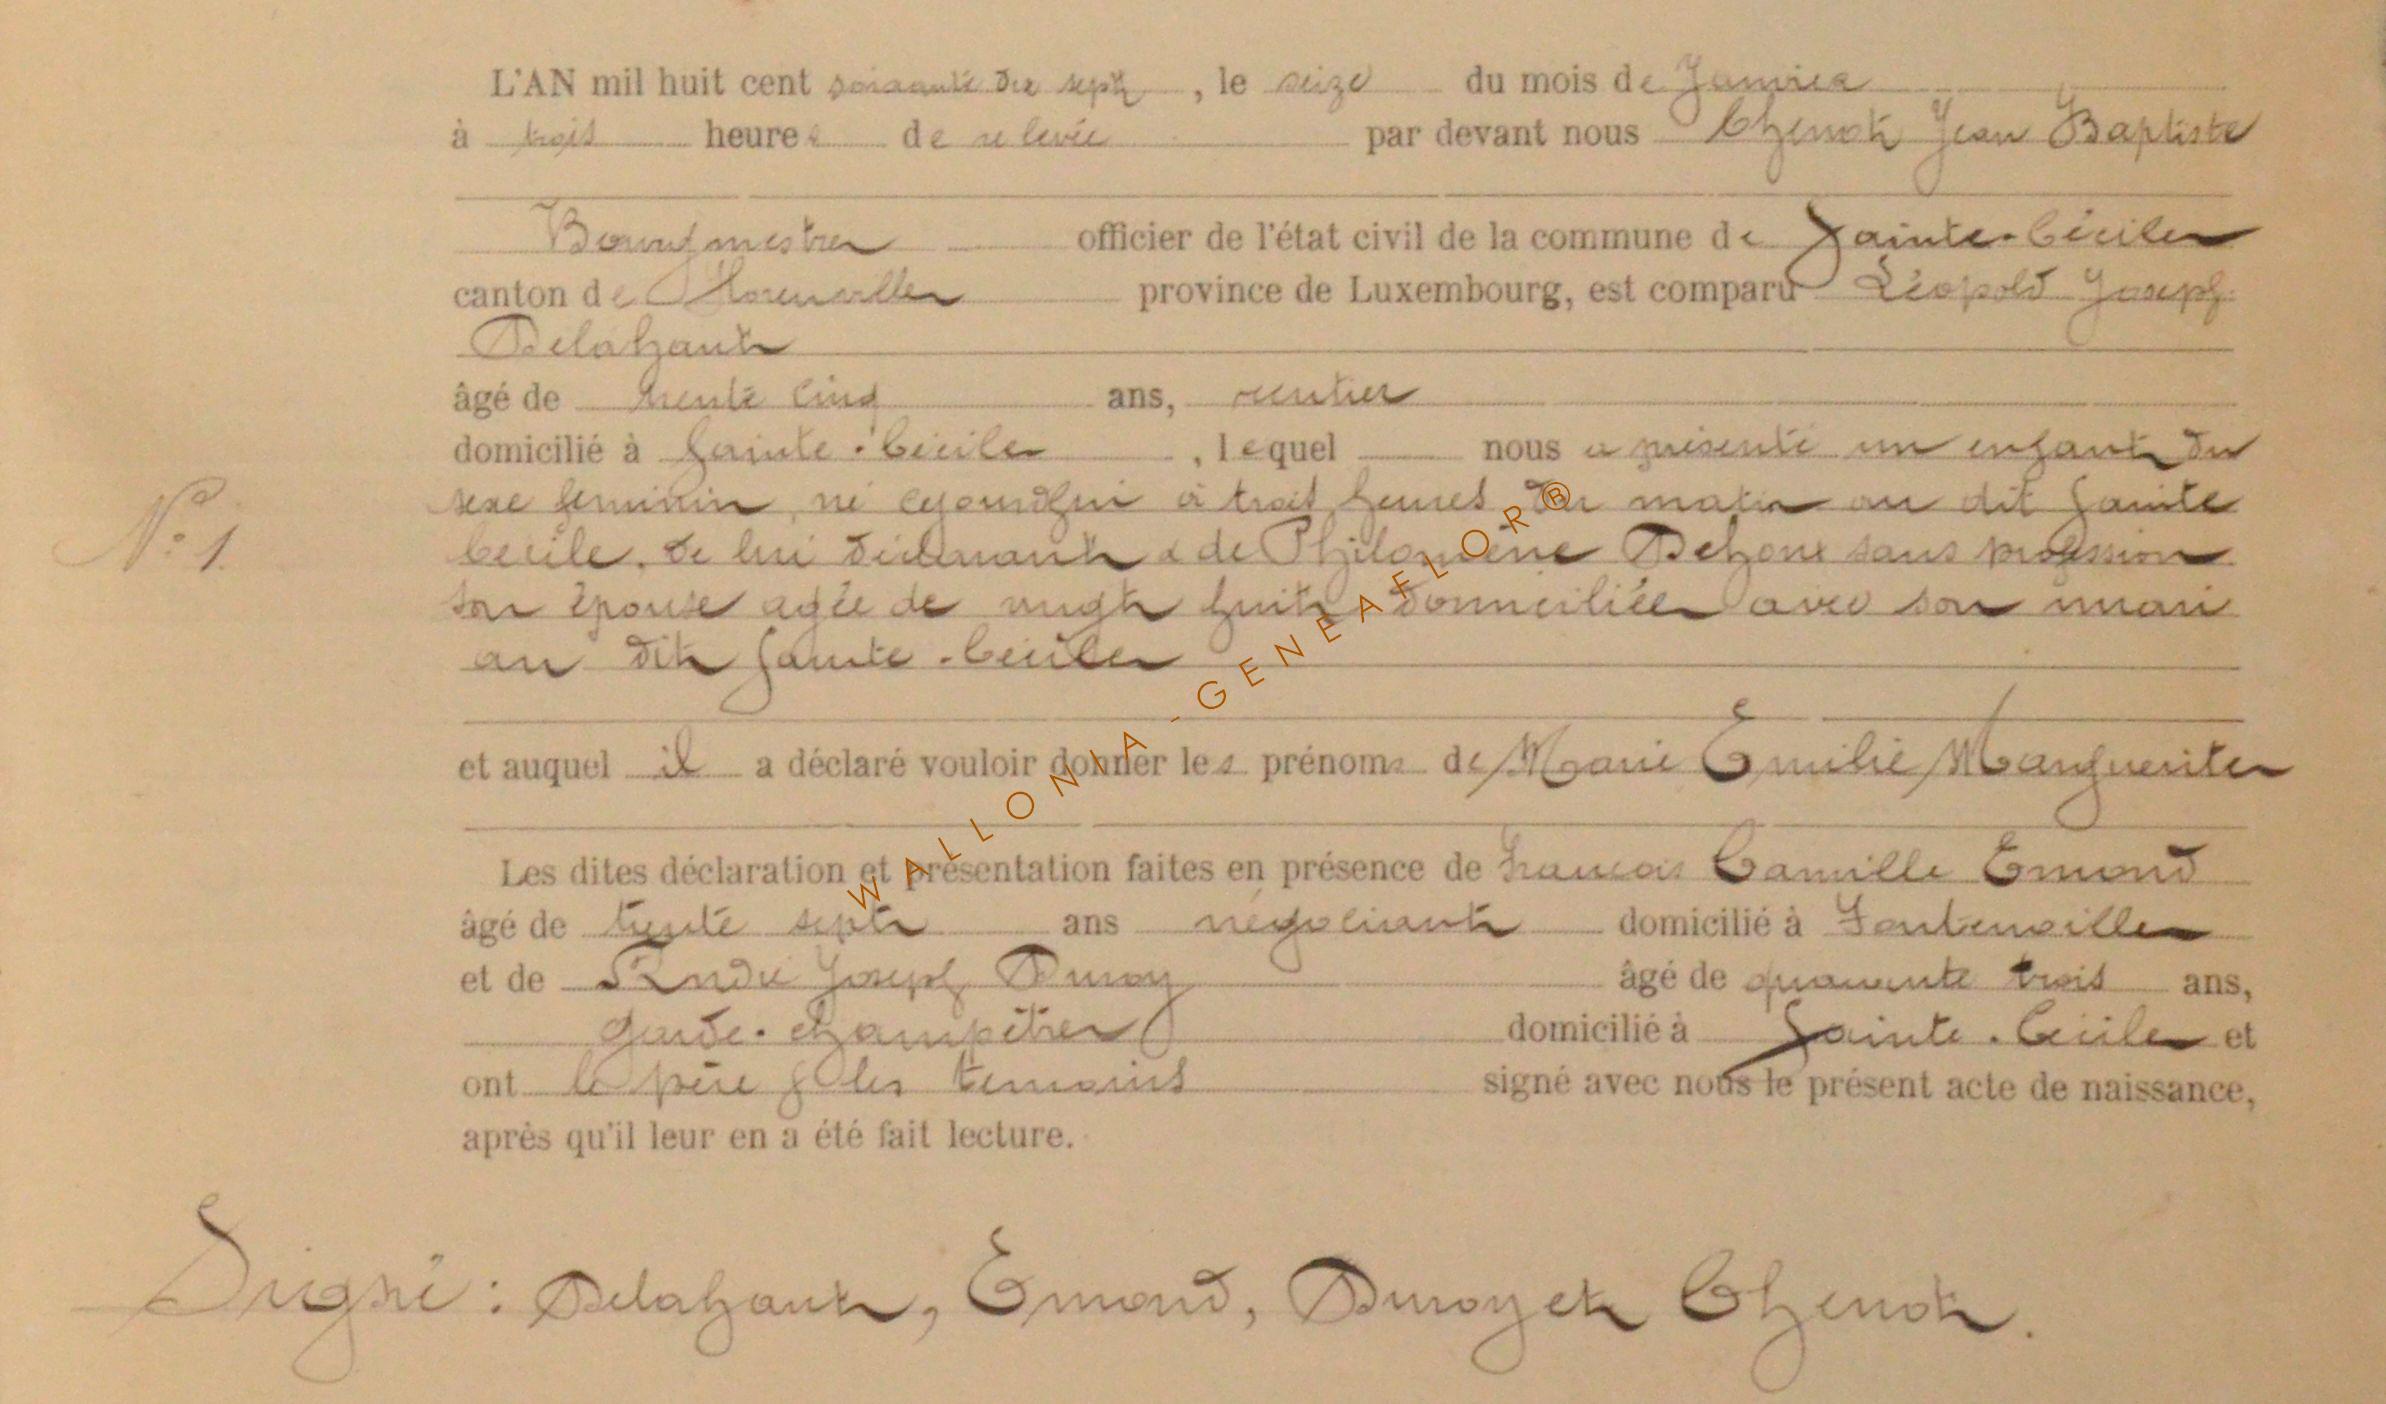 L'AN mil huit cent soixante dix sept, le seize du mois de Janvier
à trois heures de relevée par devant nous Chenot Jean Baptiste
Bourgmestre officier de l'état civil de la commune de Sainte-Cécile
canton de Florenville province de Luxembourg, est comparu Léopold Joseph
Delahaut
âgé de trente cinq ans, rentier
domicilié à Sainte-Cécile, lequel nous a présenté un enfant du
N° 1.
sexe feminin, né cejourd'hui à trois heures du matin au dit Sainte
Cécile, de lui déclarant & de Philomène Dehoux sans profession
son épouse agée de vingt huit, domiciliée avec son mari
au dit Sainte-Cécile
et auquel il a déclaré vouloir donner les prénoms de Marie Emilie Marguerite
Les dites déclaration et présentation faites en présence de Francois Camille Emond
âgé de trente sept ans négociant domicilié à Fontenoille
et de André Joseph Duroy âgé de quarante trois ans,
garde-champêtre domicilié à Sainte-Cécile et
ont le père & les temoins signé avec nous le présent acte de naissance,
après qu'il leur en a été fait lecture.
Signé : Delahaut, Emond, Duroy et Chenot.
WALLONIA-GENEAFLOR®